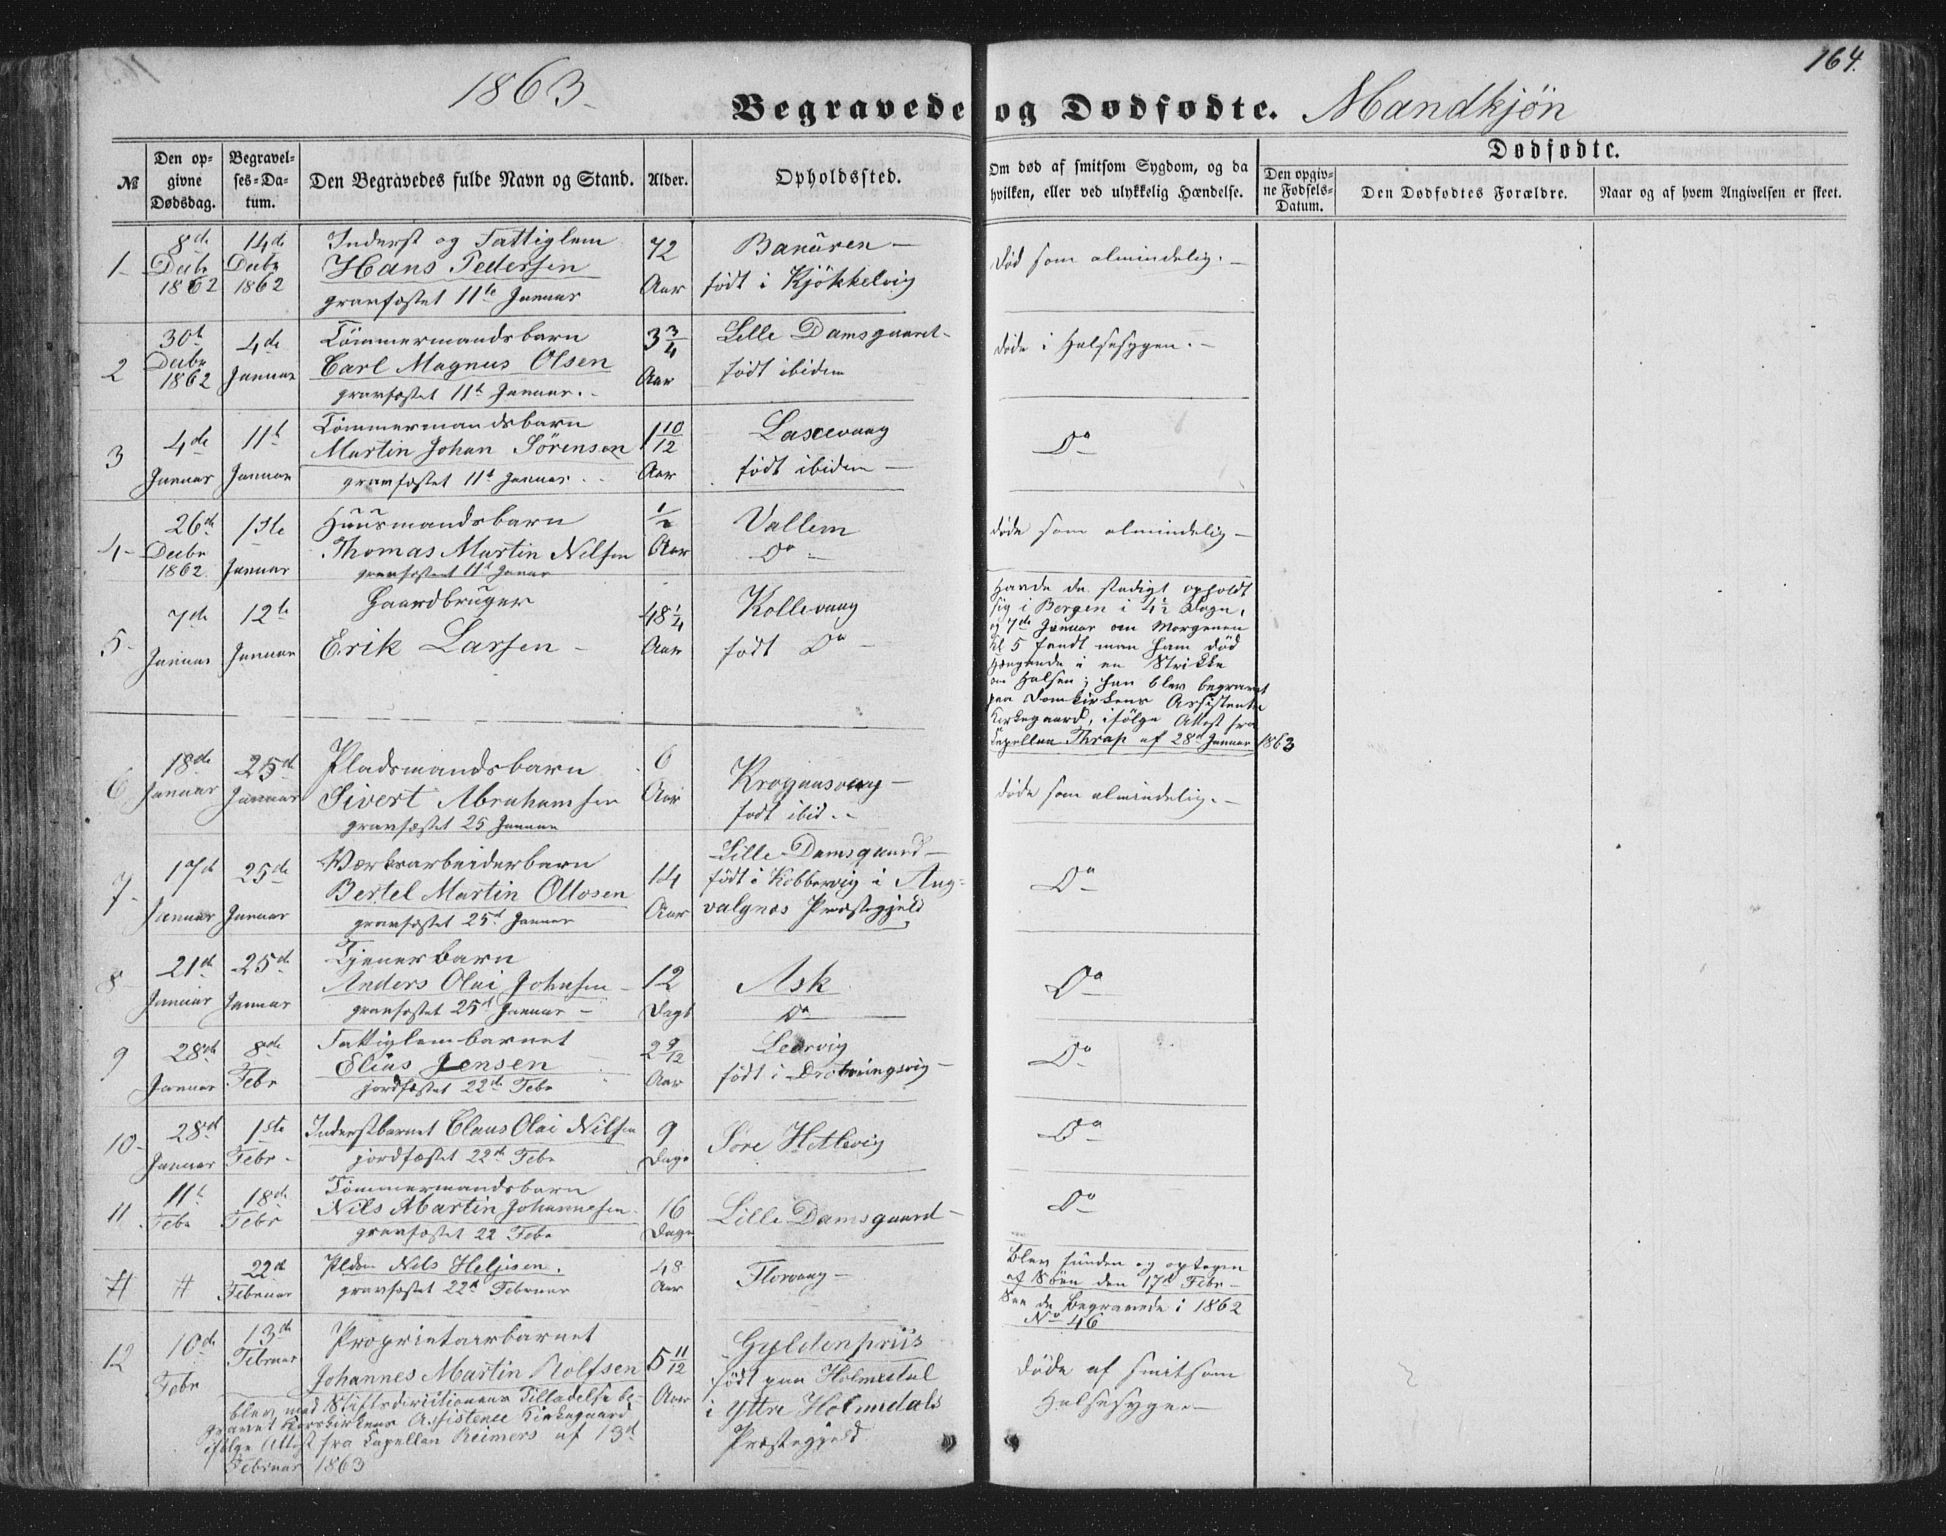 164.
1863.
Begravede og Dødfødte. Mandkjøn
№
Den op-
givne
Dødsdag.
Begravel-
ses-Da-
tum.
Den Begravedes fulde Navn og Stand.
Alder.
Opholdssted.
Om død af smitsom Sygdom, og da
hvilken, eller ved ulykkelig Hændelse.
Dødfødte.
Den opgiv-
ne Fødsels-
Datum.
Den Dødfødtes Forældre.
Naar og af hvem Angivelsen er skeet.
1-
8de
Decbr
1862
14de
Decbr
1862
Inderst og Fattiglem
Hans Pedersen
gravfæstet 11te Januar
72
Aar
født i Kjøkkelvig
Død som almindelig. -
2
30t
Decbr
1862
4de
Januar
Tømmermandsbarn
Carl Magnus Olsen
gravfæstet 11t Januar. -
3 3/4
Aar
Lille Damsgaard-
født ibidem
døde i Halssygen. -
3
4de
Januar
11t
Januar
Tømmermandsbarn
Martin Johan Sørensen
gravfæstet 11t Januar. -
1 10/12
Aar
født ibidem -
Do
4-
26de
Decbr
1862.
1ste
Januar
Huusmandsbarn
Thomas Martin Nilsen
gravfæstet 11t Januar
1/2
Aar
Vallem
Do -
døde som almindelig -
5-
7de
Januar
12te
Januar
Gaardbruger
Erik Larsen -
48 1/4
Aar
Kollevaag
født Do -
Havde de stadigt opholdt
sig i Bergen i 4 1/2 Dage,
og 7de Januar om Morgenen
Kl 5 fandt man ham død
hængende i en Strikke
om Halsen; han blev begravet
paa Domkirkens Assistents
Kirkegaard, ifølge Attest fra
Capellan Thrap af 28d Januar 1863
6
18de
Januar
25d
Januar
Pladsmandsbarn
Sivert Abrahamsen
gravfæstet 25 Januar
6
Aar
født ibid. -
døde som almindelig. -
7-
17d
Januar
25de
Januar
Værksarbeiderbarn
Bertel Martin Ottosen
gravfæstet 25d Januar
14
Aar
Lille Damsgaard -
født i Kobbervig i Aug-
valgnæs Præstegjeld
Do
8-
21d
Januar
25d
Januar
Tjenerbarn
Anders Olai Johnsen -
gravfæstet 25d Januar -
12
Dage
Ask
Do
Do
9
28de
Januar
8de
Febr
Fattiglembarnet
Elias Jensen
jordfæstet 22de Febr
2 9/12
Aar
født i
Do
10-
28d
Januar
1ste
Febr -
Inderstbarnet Claus Olai Nilsen
jordfæstet 22de Febr
9
Dage
Søre Hetlevig
Do
11
11t
Febr
18de
Febr
Tømmermandsbarn
Nils Martin Johannesen
gravfæstet 22 Febr
16
Dage
Lille Damsgaard -
Do
#
#
22d
Februar
Pldsm Nils Heljesen.
gravfæstet 22d Februar
48
Aar
Florvaag -
Blev funden og optagen
af Søen den 17d Febr -
See de Begravede i 1862
No 46
12
10de
Febr
13de
Februar
Proprietairbarnet
Johannes Martin Rolfsen
blev med Stiftsdirectionens Tilladelse be-
gravet Korskirkens Assistence Kirkegaard
ifølge Attest fra Capellan Reimers af 13d
Februar 1863
5 11/12
Aar
Gyldenpriis
født paa Holmedal
i Yttre Holmedals
Præstegjeld
Døde af smitsom
Halssyge. -